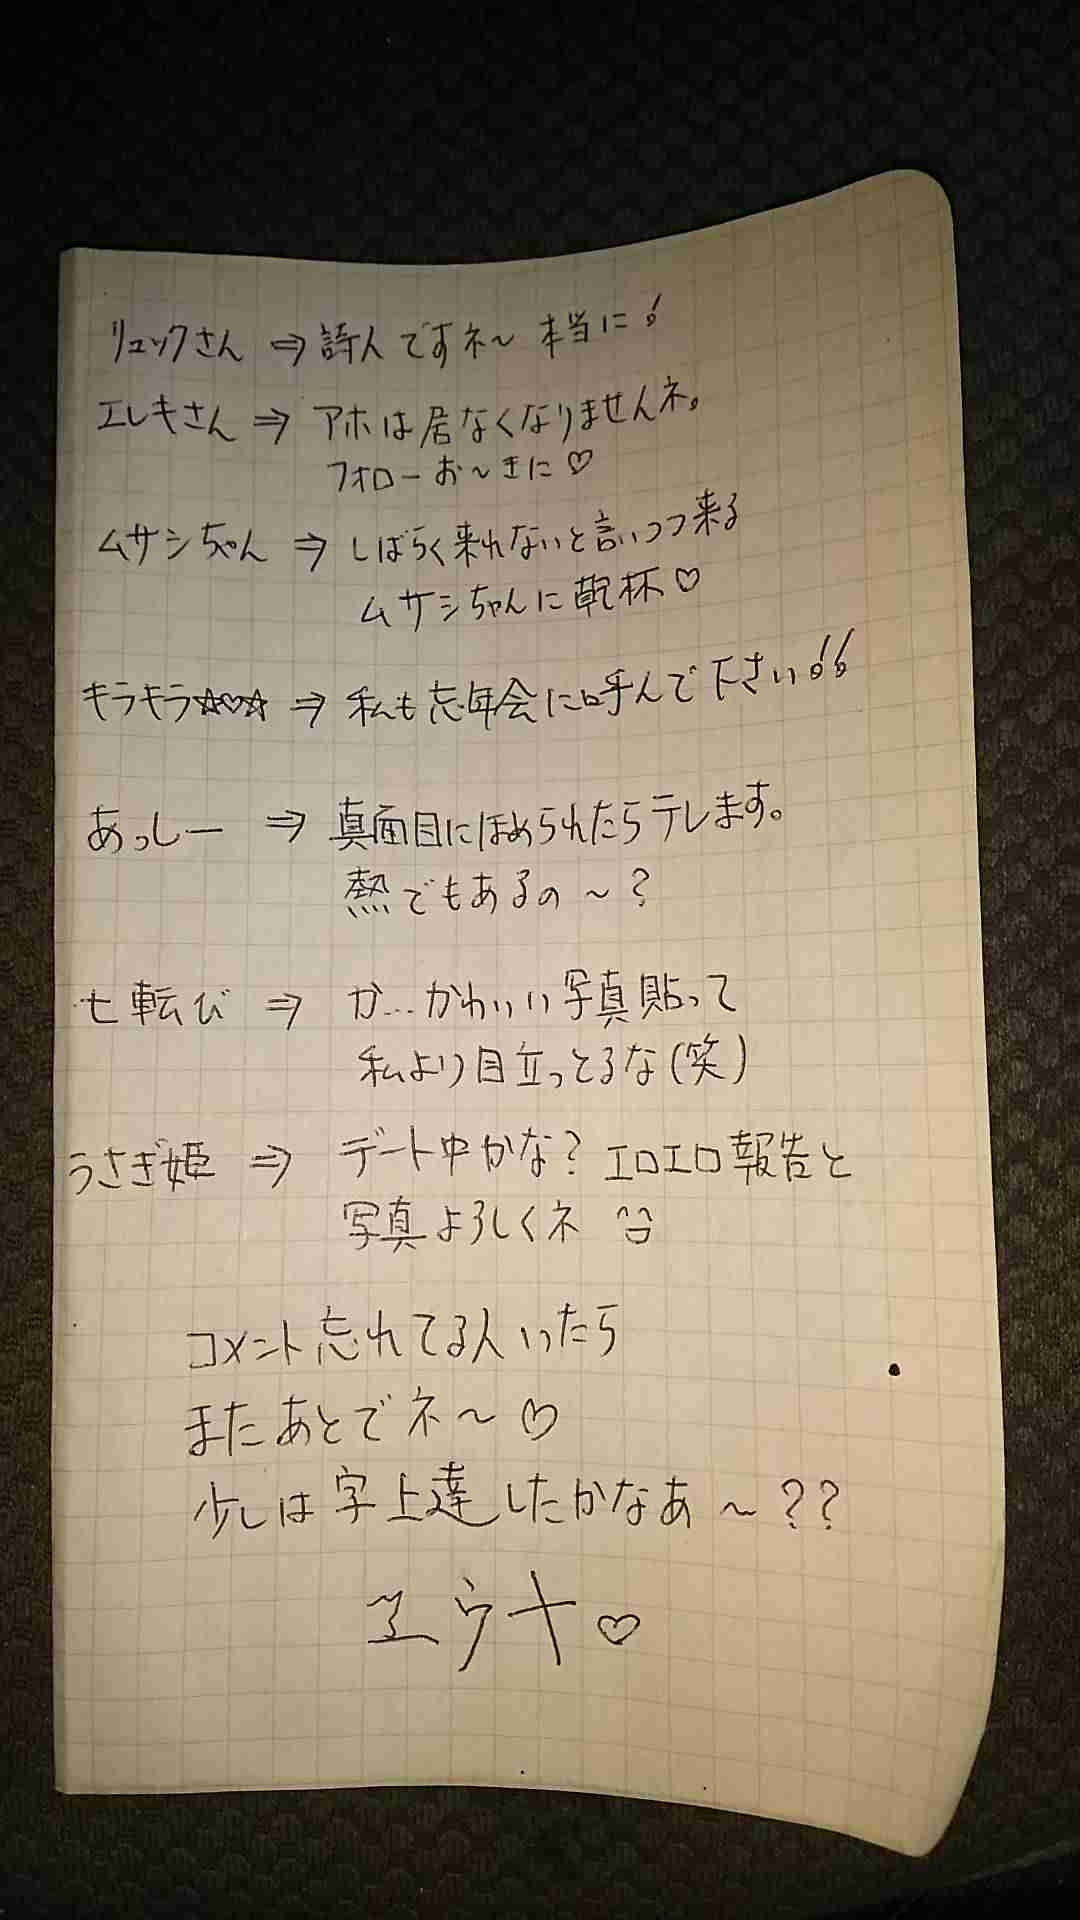 リュックさん ⇒ 詩人ですネ〜 本当に!
エレキさん ⇒ アホは居なくなりませんネ。
フォローお〜きに♡
ムサシちゃん ⇒ しばらく来れないと言いつつ来る
ムサシちゃんに乾杯♡
キラキラ☆♡☆ ⇒ 私も忘年会に呼んで下さい!!
あっしー ⇒ 真面目にほめられたらテレます。
熱でもあるの〜?
七転び ⇒ か…かわいい写真貼って
私より目立っとるな(笑)
うさぎ姫 ⇒ デート中かな? エロエロ報告と
写真よろしくネ
コメント忘れてる人いたら
またあとでネ〜♡
少しは字上達したかなあ〜??
ユウナ♡